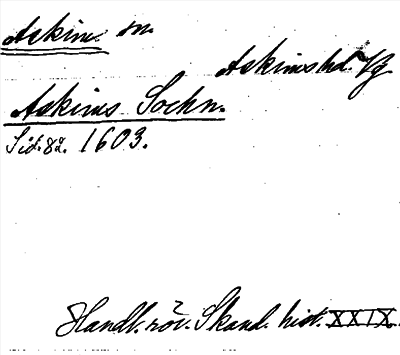 Askim sn.
Askims hd. Vg
Askims Sochn.
Sid. 82. 1603.
Handl. rör. Skand. hist. XXIX.